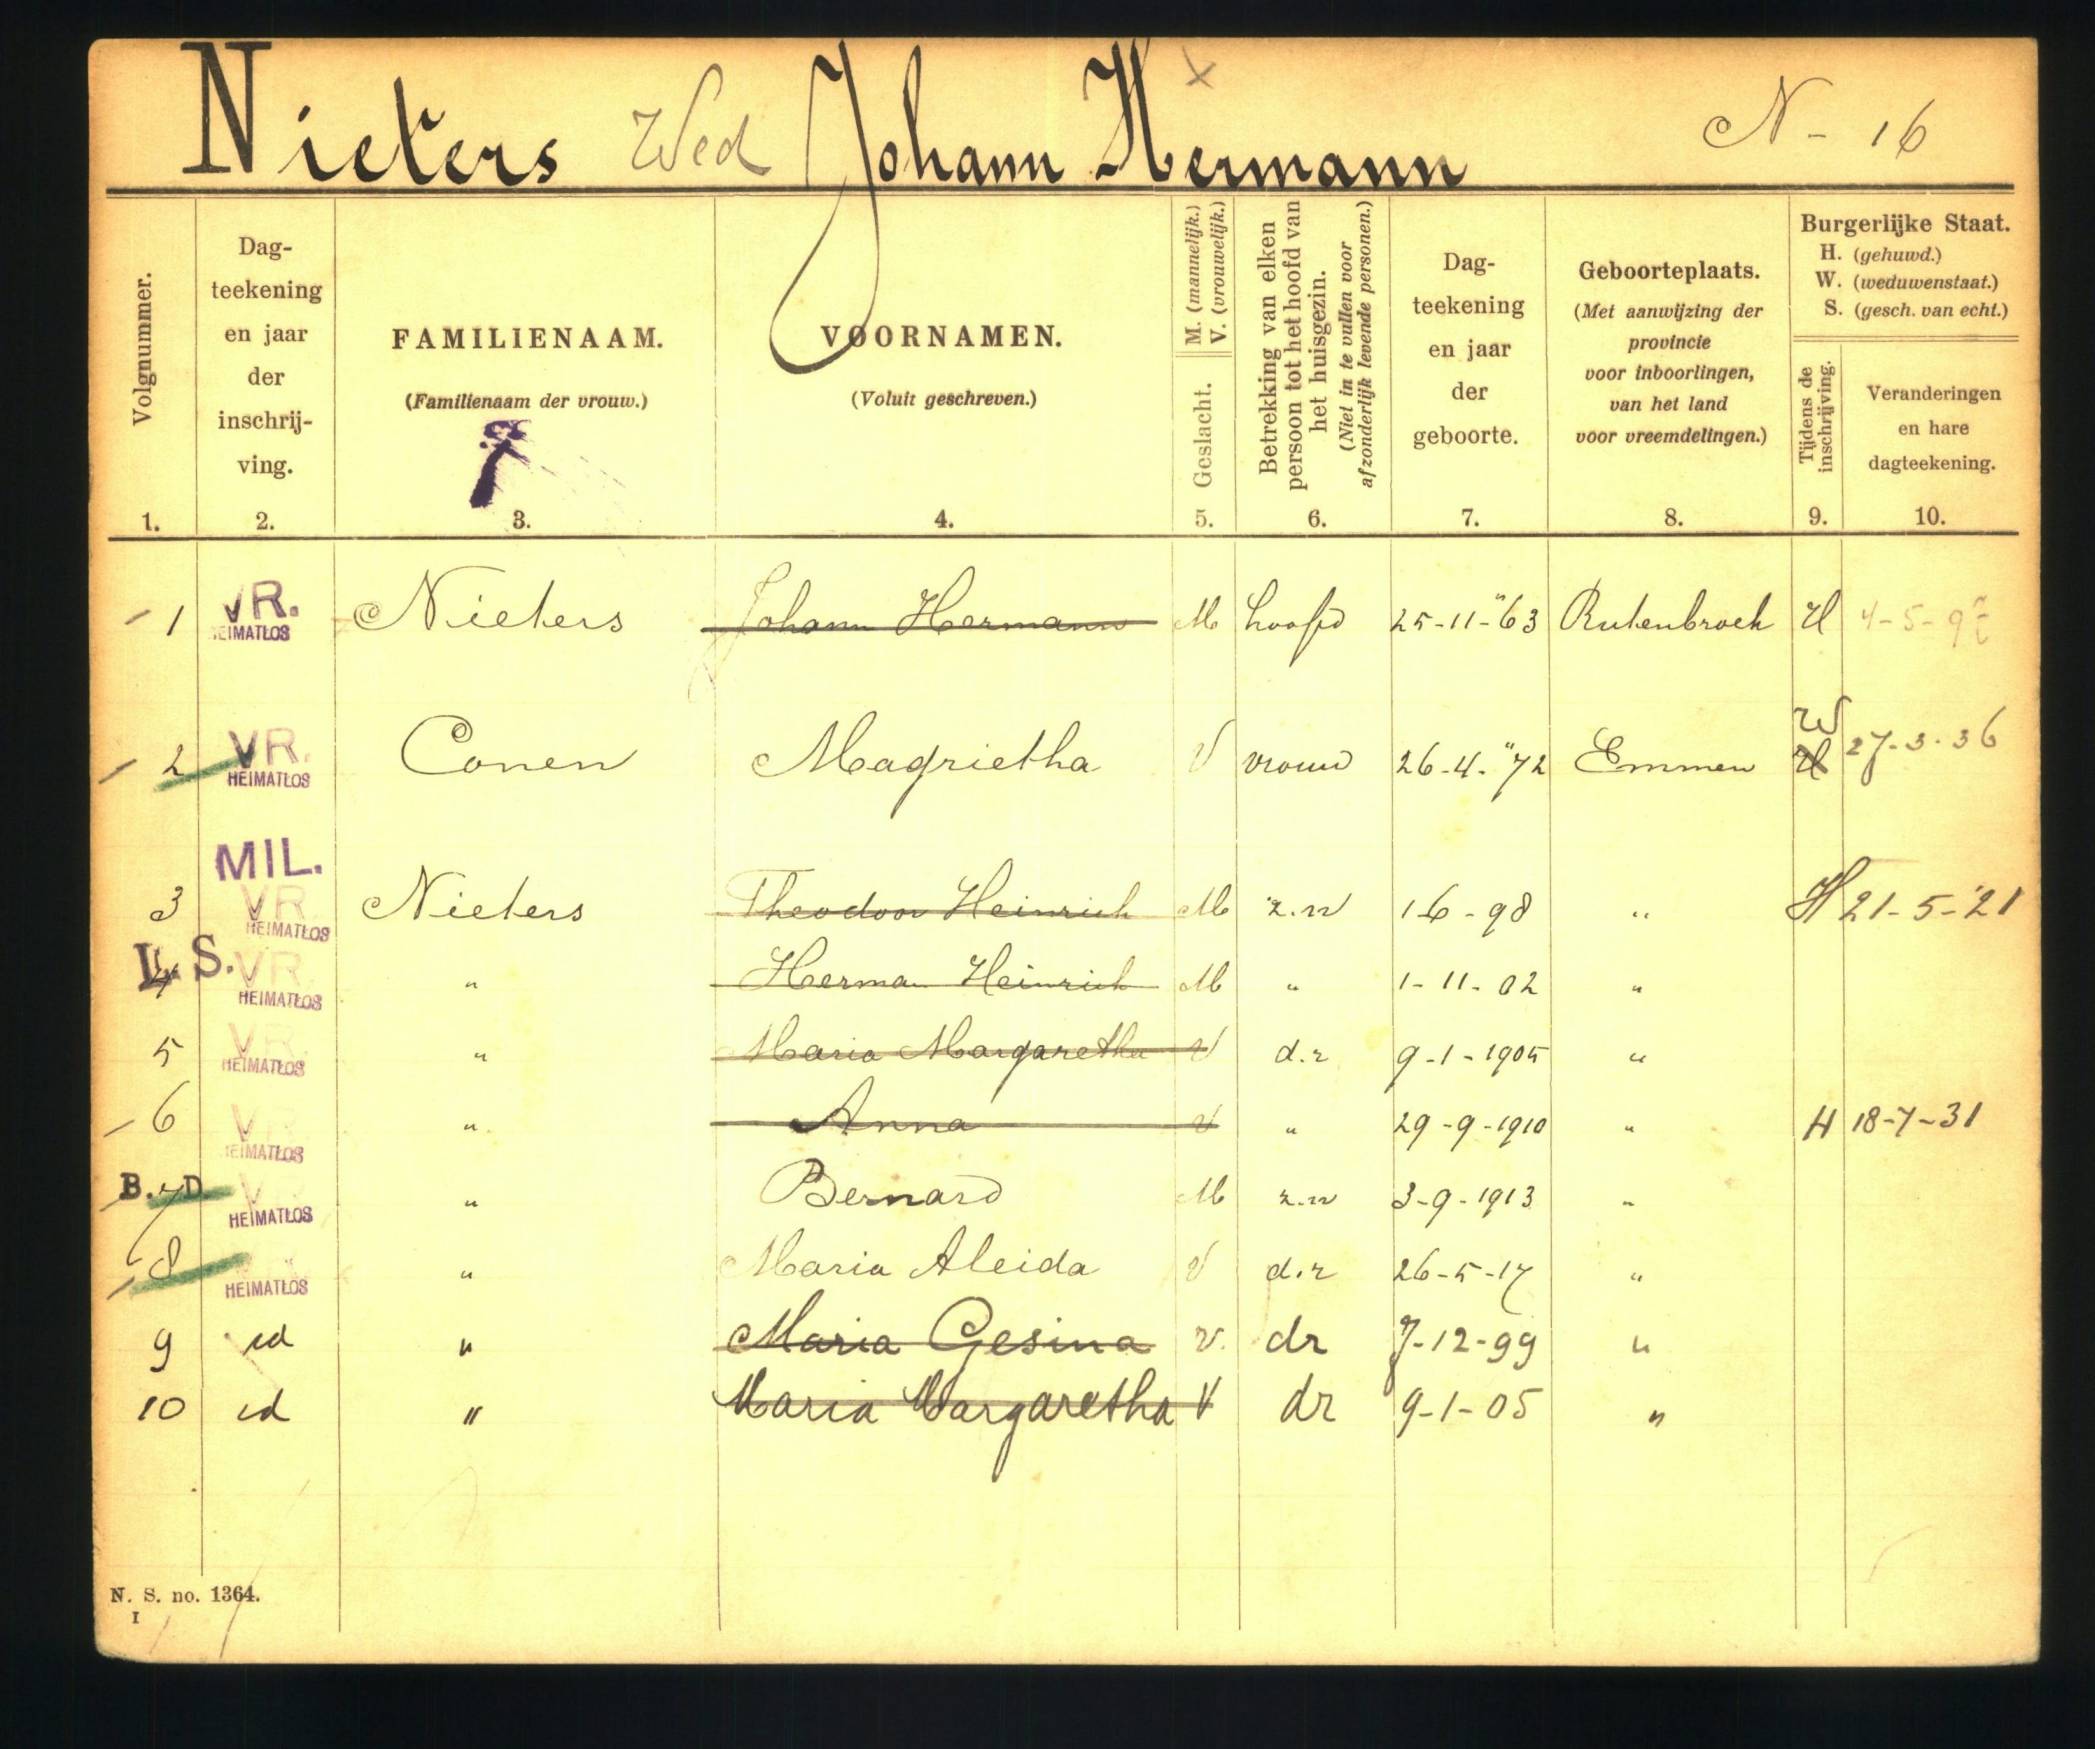 Nieters Wed Johann Hermann N - 16
Volgnummer.
Dag-
teekening
en jaar
der
inschrij-
ving.
FAMILIENAAM.
(Familienaam der vrouw.)
VOORNAMEN.
(Voluit geschreven.)
M. (mannelijk.)
V. (vrouwelijk.)
Geslacht.
Betrekking van elken
persoon tot het hoofd van
het huisgezin.
(Niet in te vullen voor
afzonderlijk levende personen.)
Dag-
teekening
en jaar
der
geboorte.
Geboorteplaats.
(Met aanwijzing der
provincie
voor inboorlingen,
van het land
voor vreemdelingen.)
Burgerlijke Staat.
H. (gehuwd.)
W. (weduwenstaat.)
S. (gesch. van echt.)
Tijdens de
inschrijving.
Veranderingen
en hare
dagteekening.
1. 2. 3. 4. 5. 6. 7. 8. 9. 10.
1 VR. Nieters Johann Hermann M hoofd 25-11-"63 Rutenbroek H 4-5-9
HEIMATLOS
W
2 VR. Conen Magrietha V vrouw 26-4-"72 Emmen H 27-3-36
HEIMATLOS
MIL.
3 VR. Nieters Theodoor Heinrich M z.n 16-98 " H 21-5-'21
HEIMATLOS
L. S.
4 VR. " Herman Heinrich M " 1-11-02 "
HEIMATLOS
5 VR. " Maria Margaretha V d.r 9-1-1905 "
HEIMATLOS
6 VR. " Anna V " 29-9-1910 " H 18-7-31
HEIMATLOS
B. 7 D. VR. " Bernard M z.n 3-9-1913 "
HEIMATLOS
8 " Maria Aleida V d.r 26-5-17 "
HEIMATLOS
9 id " Maria Gesina V. dr 7-12-99 "
10 id " Maria Margaretha V dr 9-1-05 "
N. S. no. 1364.
I